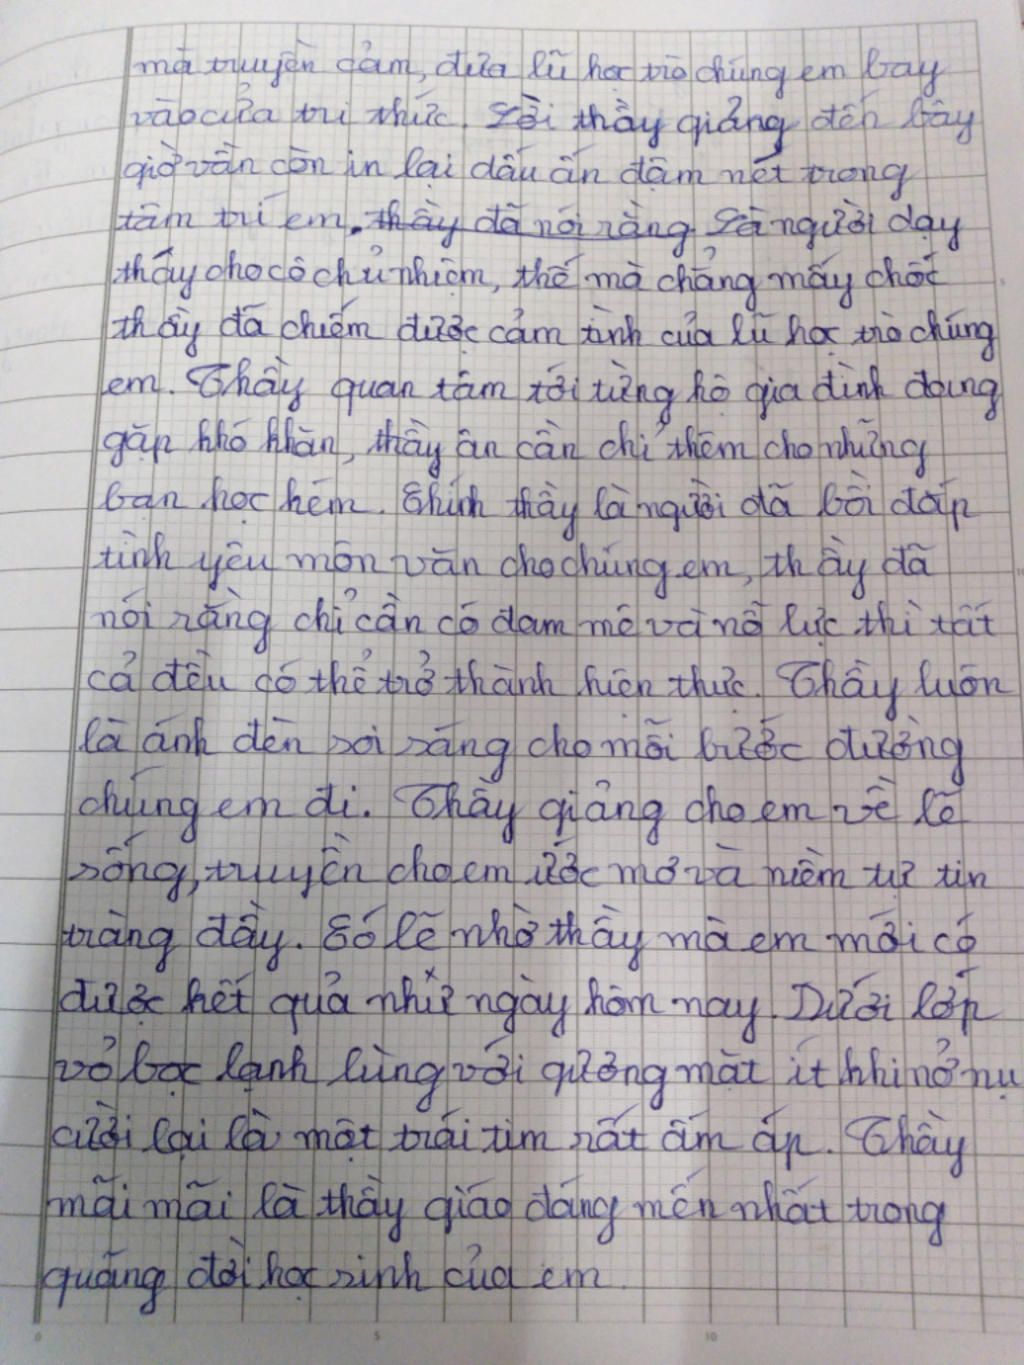 mà truyền cảm, đưa lũ học trò chúng em bay
vào cửa tri thức. Lời thầy giảng đến bây
giờ vẫn còn in lại dấu ấn đậm nét trong
tâm trí em. thầy đã nói rằng Là người dạy
thay cho cô chủ nhiệm, thế mà chẳng mấy chốc
thầy đã chiếm được cảm tình của lũ học trò chúng
em. Thầy quan tâm tới từng hộ gia đình đang
gặp khó khăn, thầy ân cần chỉ thêm cho những
bạn học kém. Chính thầy là người đã bồi đắp
tình yêu môn văn cho chúng em, thầy đã
nói rằng chỉ cần có đam mê và nỗ lực thì tất
cả đều có thể trở thành hiện thực. Thầy luôn
là ánh đèn soi sáng cho mỗi bước đường
chúng em đi. Thầy giảng cho em về lẽ
sống, truyền cho em ước mơ và niềm tự tin
tràng đầy. Có lẽ nhờ thầy mà em mới có
được kết quả như ngày hôm nay. Dưới lớp
vỏ bọc lạnh lùng với gương mặt ít khi nở nụ
cười lại là một trái tim rất ấm áp. Thầy
mãi mãi là thầy giáo đáng mến nhất trong
quãng đời học sinh của em.